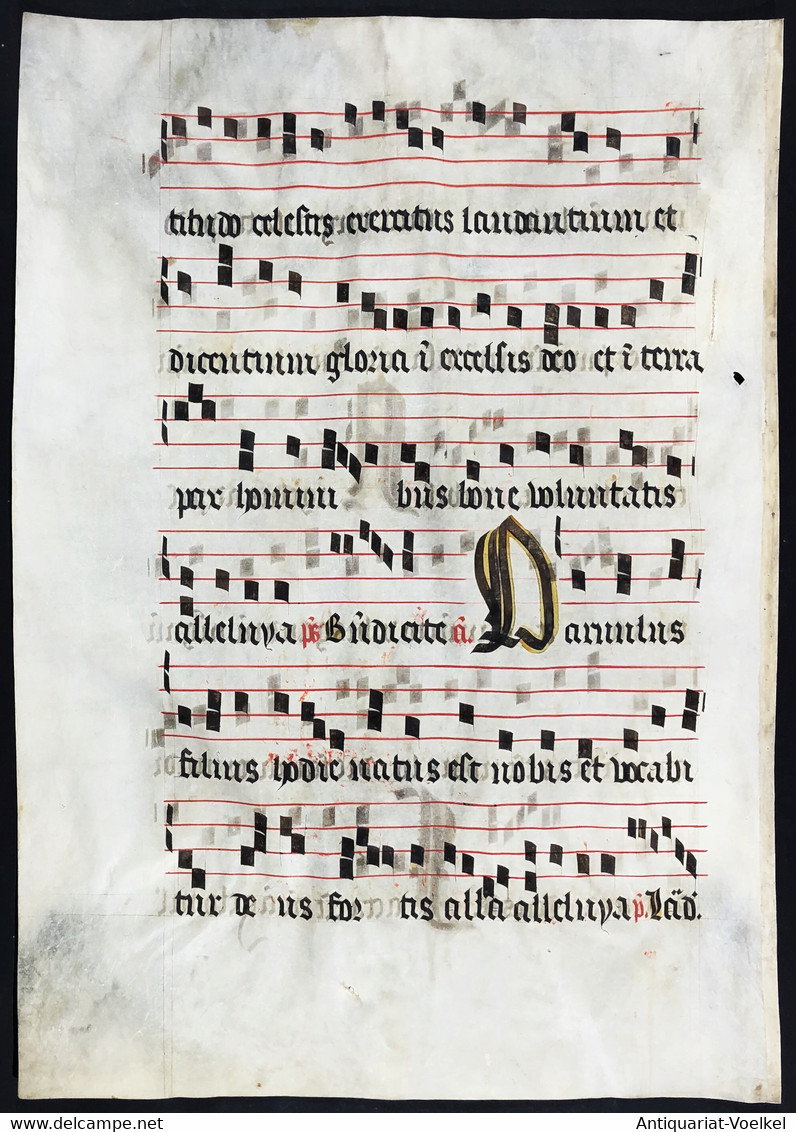 titudo celestis exercitus laudantium et
dicentium gloria ī excelsis deo et ī terra
pax homini bus bone voluntatis
alleluya ps Bn̄dicite añ. Parvulus
filius hodie natus est nobis et vocabi
tur de us for tis alla alleluya p. Laūd.
Antiquariat-Voelkel